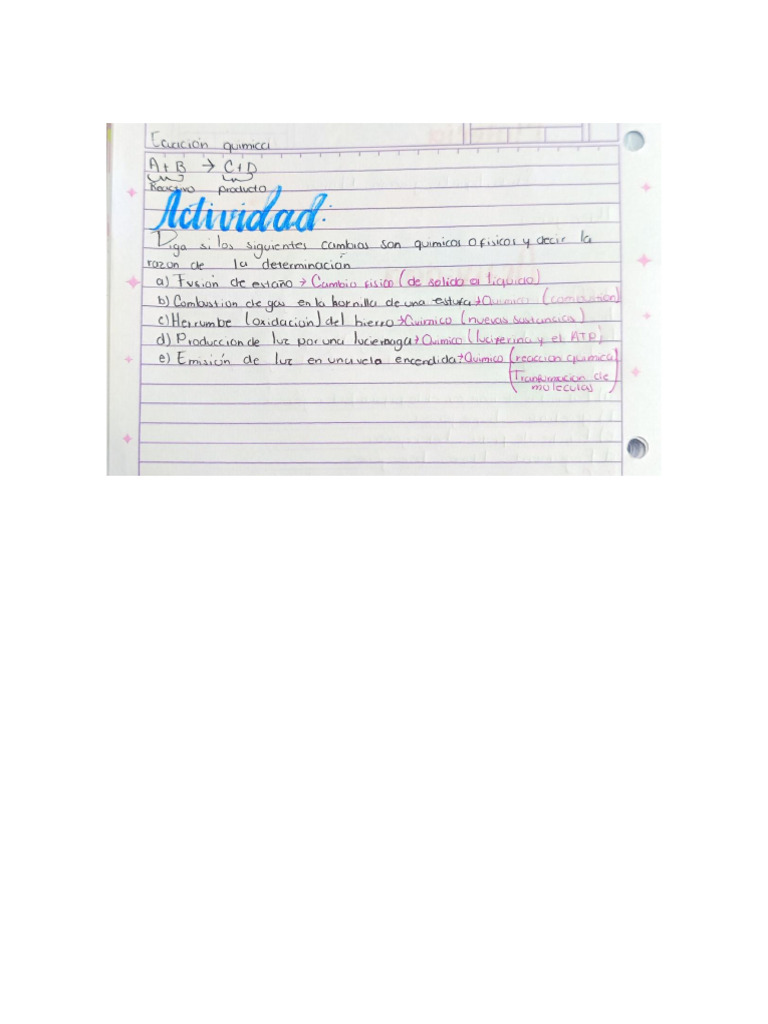 Ecuación quimica
A+B → C+D
Reactivo producto
Actividad:
Diga si los siguientes cambios son quimicos o fisicos y decir la
razon de la determinación
a) Fusión de estaño → Cambio fisico (de solido a liquido)
b) Combustion de gas en la hornilla de una estufa → Quimico (combustion)
c) Herrumbe (oxidación) del hierro → Quimico (nuevas sustancias)
d) Produccion de luz por una luciernaga → Quimico (luciferina y el ATP)
e) Emisión de luz en una vela encendida → Quimico (reaccion quimica)
(Tranformacion de
moleculas)